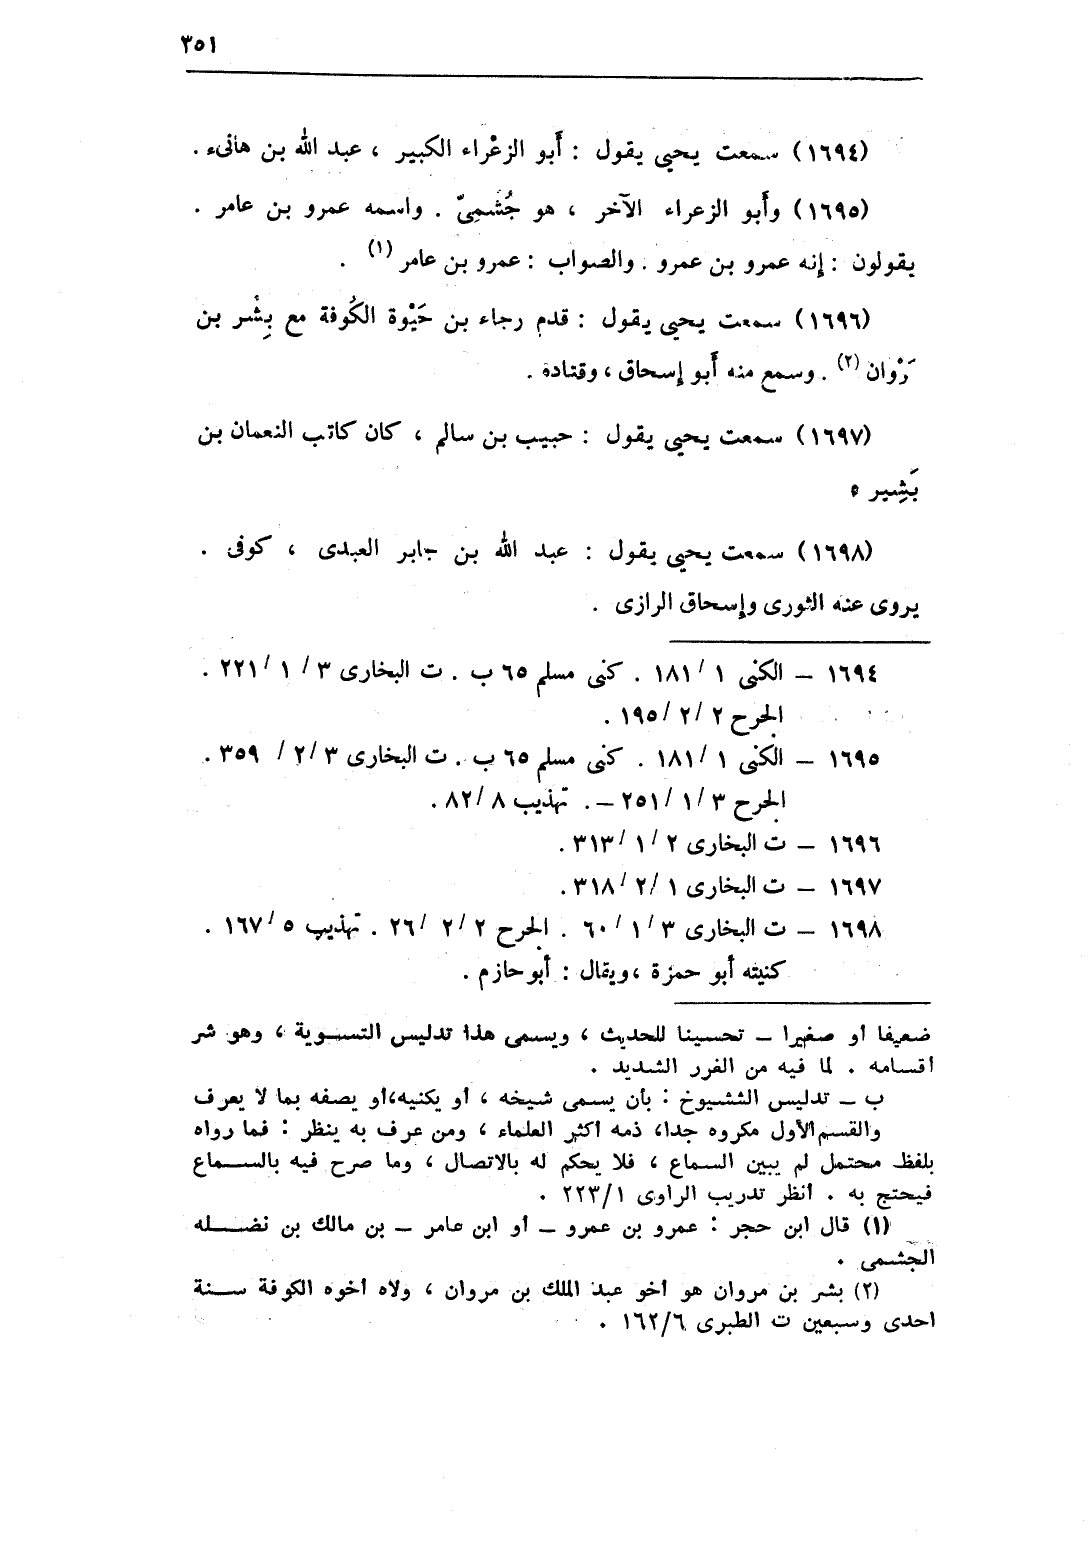 ٣٥١
(١٦٩٤) سمعت يحيى يقول : أَبو الزعْراء الكبير ، عبد الله بن هانىء .
(١٦٩٥) وأَبو الزعراء الآخر ، هو جُشَمِىّ . واسمه عمرو بن عامر .
يقولون : إنه عمرو بن عمرو . والصواب : عمرو بن عامر (١) .
(١٦٩٦) سمعت يحيى يقول : قدم رجاء بن حَيْوة الكُوفة مع بِشْر بن
رَوْان (٢) . وسمع منه أَبو إسحاق ، وقتادة .
(١٦٩٧) سمعت يحيى يقول : حبيب بن سالم ، كان كاتب النعمان بن
بَشِير ه
(١٦٩٨) سمعت يحيى يقول : عبد الله بن جابر العبدى ، كوفى .
يروى عنه الثورى وإسحاق الرازى .
١٦٩٤ – الكنى ١ /١٨١ . كنى مسلم ٦٥ ب . ت البخارى ٣ / ١ /٢٢١ .
الجرح ٢ /٢ /١٩٥ .
١٦٩٥ – الكنى ١ /١٨١ . كنى مسلم ٦٥ ب . ت البخارى ٣ /٢ / ٣٥٩ .
الجرح ٣ /١ /٢٥١ – . تهذيب ٨ /٨٢ .
١٦٩٦ – ت البخارى ٢ /١ /٣١٣ .
١٦٩٧ – ت البخارى ١ /٢ /٣١٨ .
١٦٩٨ – ت البخارى ٣ /١ /٦٠ . الجرح ٢ /٢ /٢٦ . تهذيب ٥ /١٦٧ .
كنيته أبو حمزة ، ويقال : أبو حازم .
ضعيفا أو صغيرا – تحسينا للحديث ، ويسمى هذا تدليس التسوية ، وهو شر
أقسامه . لما فيه من الغرر الشديد .
ب – تدليس الشيوخ : بأن يسمى شيخه ، أو يكنيه،أو يصفه بما لا يعرف
والقسم الأول مكروه جدا، ذمه أكثر العلماء ، ومن عرف به ينظر : فما رواه
بلفظ محتمل لم يبين السماع ، فلا يحكم له بالاتصال ، وما صرح فيه بالسماع
فيحتج به . أنظر تدريب الراوى ٢٢٣/١ .
(١) قال ابن حجر : عمرو بن عمرو – أو ابن عامر – بن مالك بن نضله
الجشمى .
(٢) بشر بن مروان هو أخو عبد الملك بن مروان ، ولاه أخوه الكوفة سنة
احدى وسبعين ت الطبرى ١٦٢/٦ .